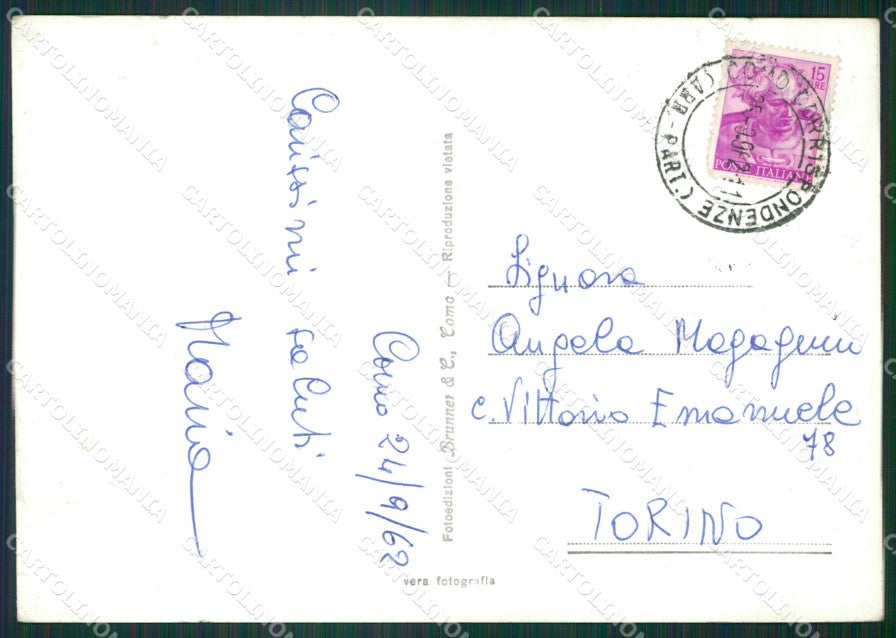 Carissimi saluti
Maria
Como 24/9/62
Fotoedizioni Brunner & C., Como — Riproduzione vietata
vera fotografia
15
LIRE
POSTE ITALIANE
COMO CORRISPONDENZE
(ARR.-PART.)
Signora
Angela Magagnin
c. Vittorio Emanuele
78
TORINO
CARTOLINOMANIA